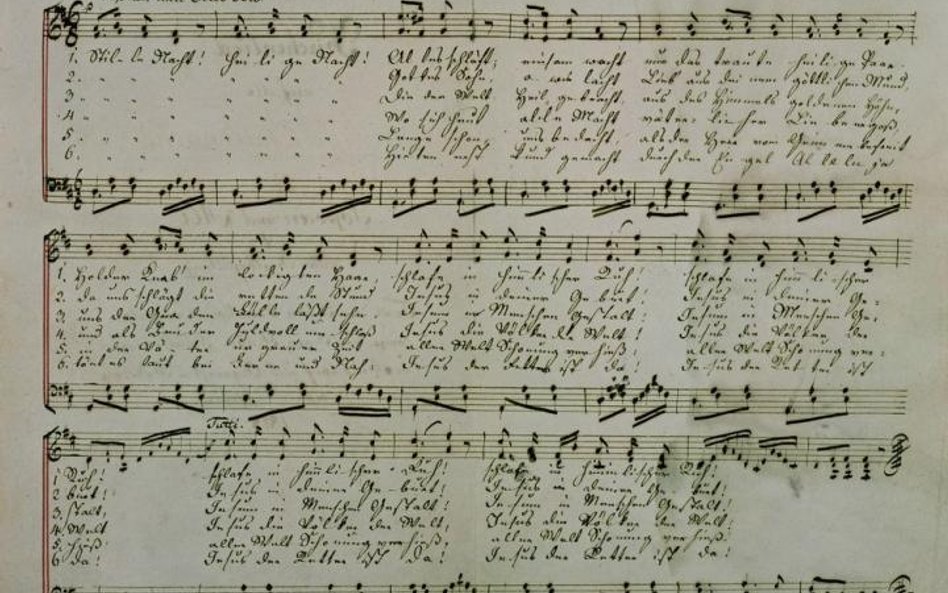 1. Stil-le Nacht! hei-li-ge Nacht! Al-les schläft; einsam wacht nur das traute heili-ge Paar.
2. " " " " " " Gottes Sohn o wie lacht Lieb' aus dei-nem göttlichen Mund,
3. " " " " " " Die der Welt Heil gebracht, aus des Himmels goldenen Höhn,
4. " " " " " " Wo sich heut alle Macht väter-licher
5. " " " " " " Lange schon uns bedacht, als der Herr vom Grimm befreit
6. " " " " " " Hirten erst kund gemacht durch der En-gel Al-le-lu-ja
1. Holder Knab' im lockigten Haare, schlafe in himmlischer Ruh! schlafe in himm-li-scher
2. da uns schlägt die rettende Stund Jesus in deiner Geburt! Jesus in deiner Ge=
3. uns der Gnaden Fülle läßt sehn, Jesum in Menschen Gestalt! Jesum in Menschen Ge.
4. und als Bruder Huldvoll umschloß Jesus die Völker der Welt! Jesus die Völker der
5. in der Vä-ter aller Welt Schonung verhieß! aller Welt Schonung ver=
6. tönt es laut bei Ferne und Nah: Jesus der Retter ist da! Jesus der Ret-ter ist
Tutti.
1 Ruh! schlafe in himmlischer Ruh! schlafe in himmlischer Ruh!
2 burt! Jesus in deiner Ge-burt! Jesus in deiner Ge-burt!
3. stalt, Jesum in Menschen Gestalt! Jesum in Menschen Gestalt!
4. Welt Jesus die Völker der Welt, Jesus die Völker der Welt!
5. hieß. aller Welt Schonung verhieß, aller Welt Schonung verhieß!
6 da! Jesus der Retter ist da! Jesus der Retter ist da!